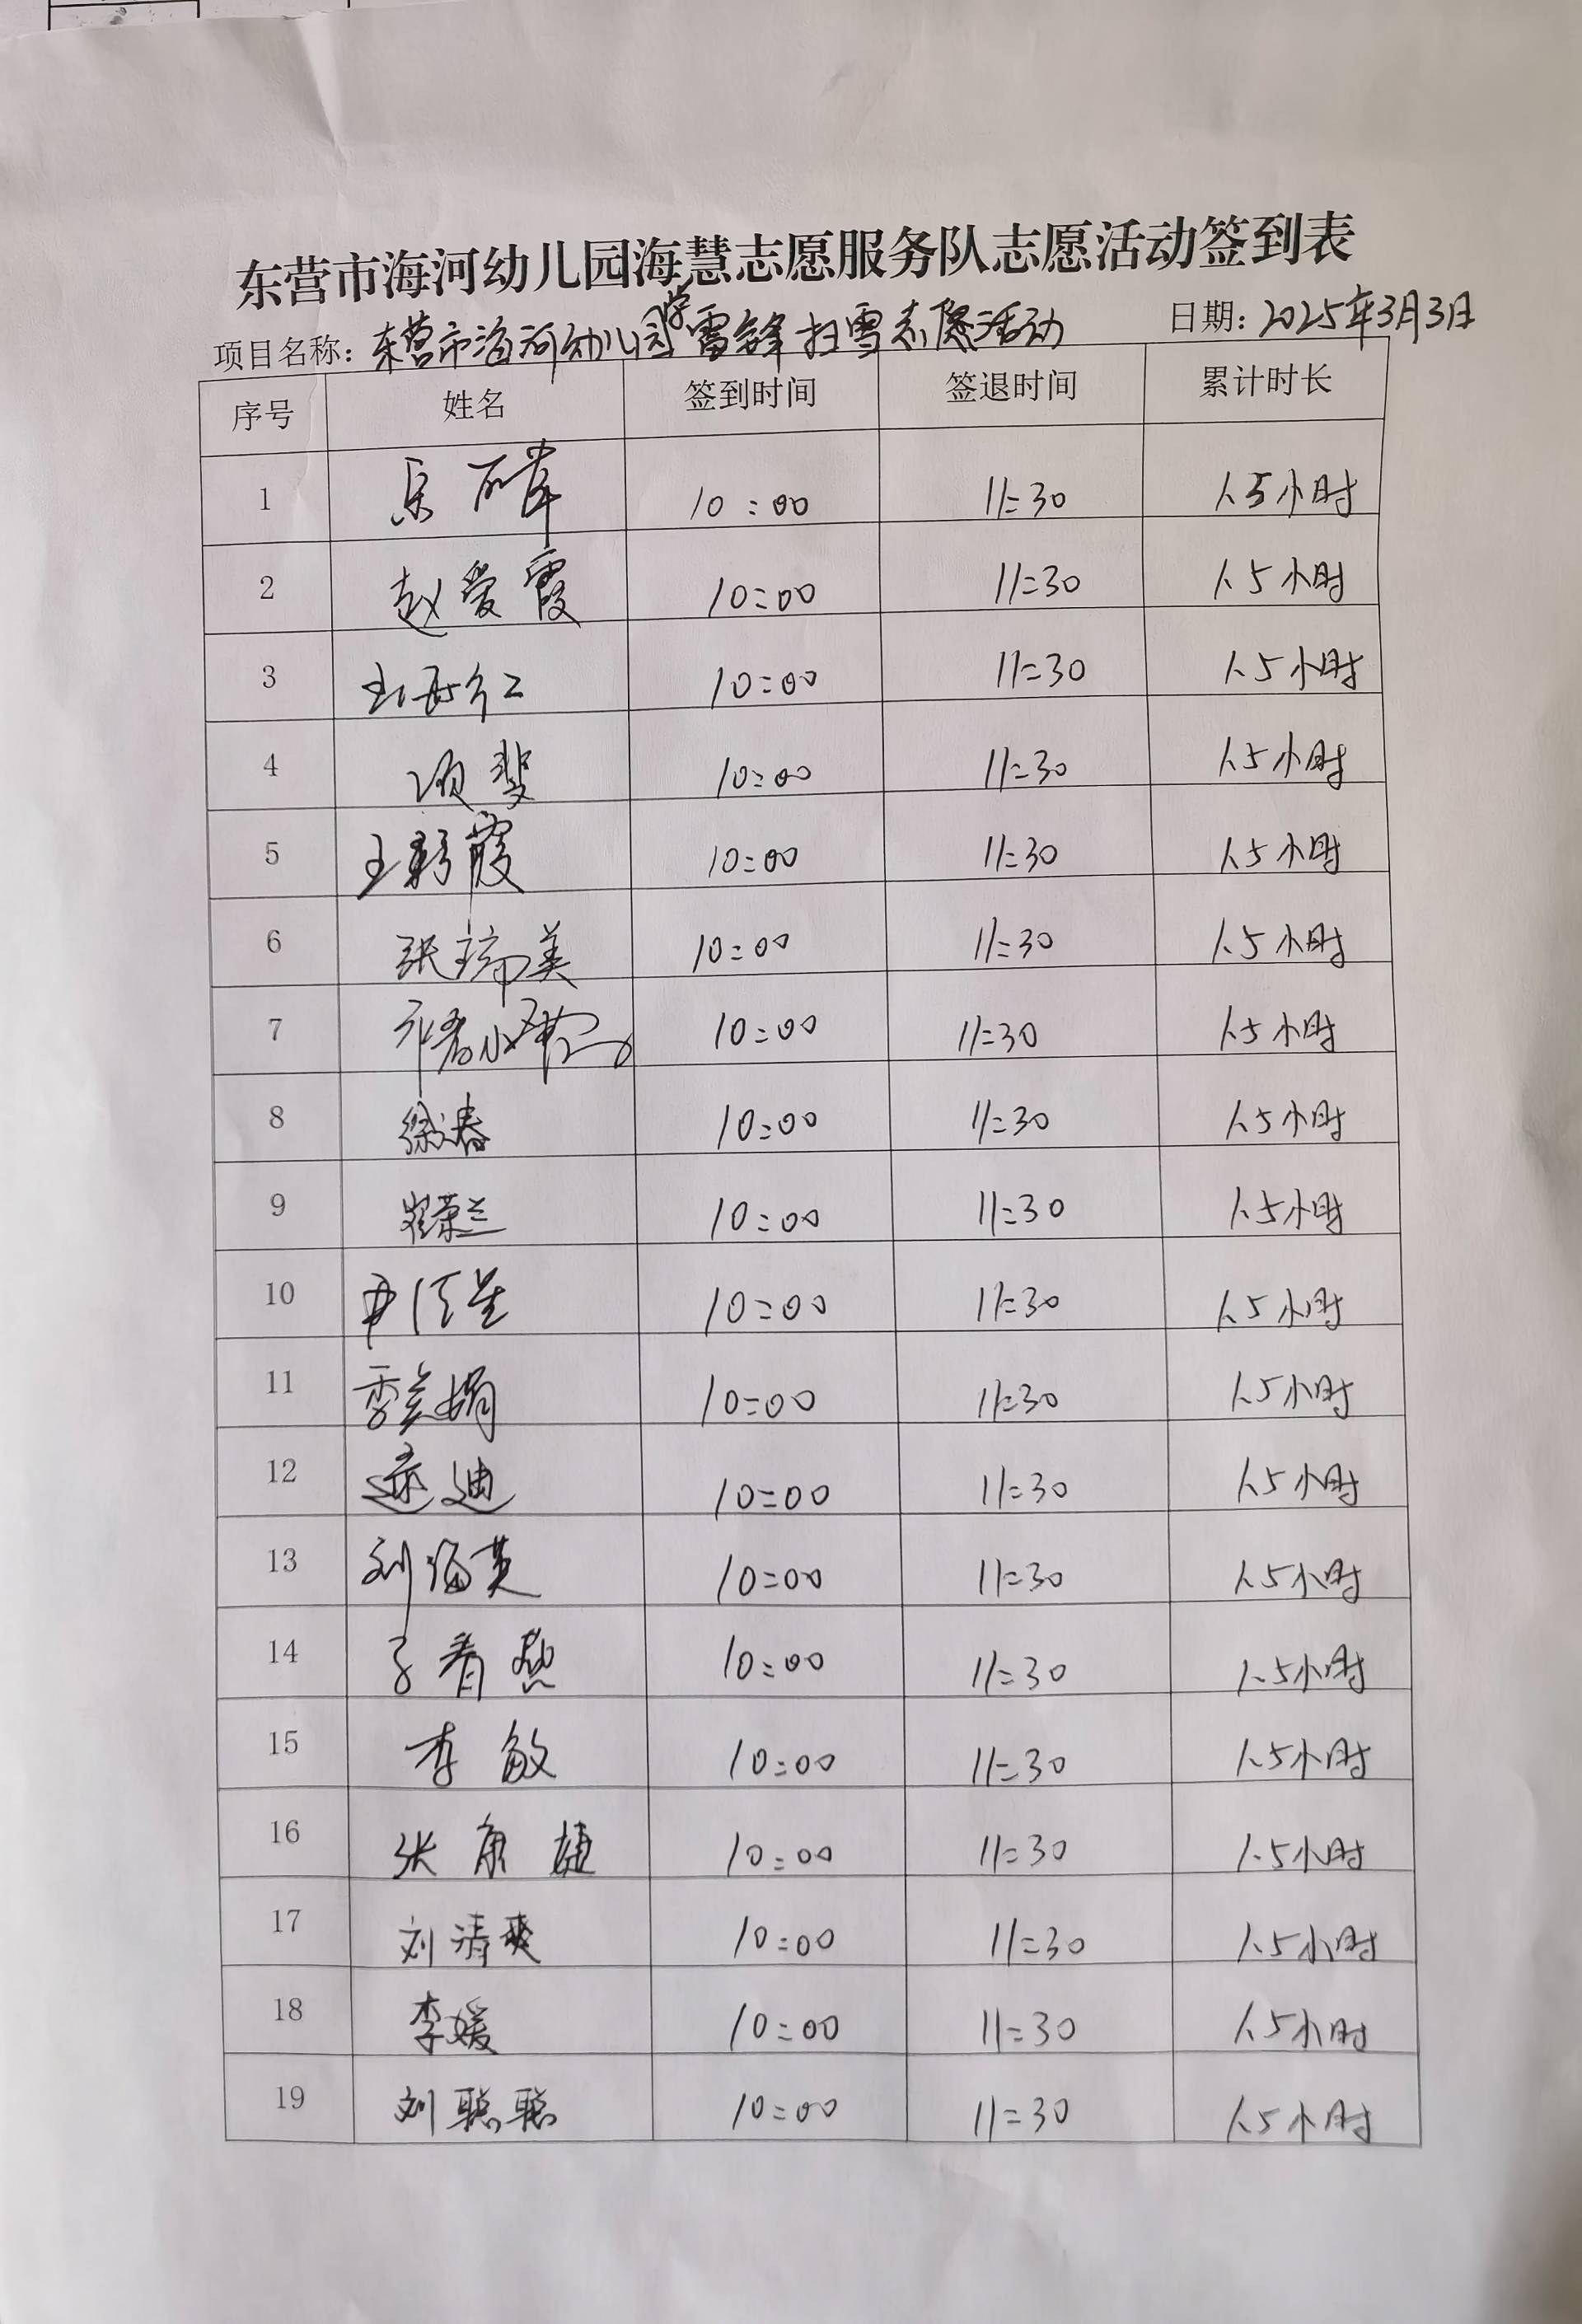 东营市海河幼儿园海慧志愿服务队志愿活动签到表
项目名称：东营市海河幼儿园学雷锋扫雪志愿活动 日期：2025年3月3日
序号 姓名 签到时间 签退时间 累计时长
1 10:00 11:30 1.5小时
2 赵爱霞 10:00 11:30 1.5小时
3 王海红 10:00 11:30 1.5小时
4 项斐 10:00 11:30 1.5小时
5 王彩霞 10:00 11:30 1.5小时
6 张瑞美 10:00 11:30 1.5小时
7 10:00 11:30 1.5小时
8 徐春 10:00 11:30 1.5小时
9 崔荣兰 10:00 11:30 1.5小时
10 10:00 11:30 1.5小时
11 季美娟 10:00 11:30 1.5小时
12 迪 10:00 11:30 1.5小时
13 刘海英 10:00 11:30 1.5小时
14 春燕 10:00 11:30 1.5小时
15 李敏 10:00 11:30 1.5小时
16 张 10:00 11:30 1.5小时
17 刘清爽 10:00 11:30 1.5小时
18 李媛 10:00 11:30 1.5小时
19 刘聪聪 10:00 11:30 1.5小时